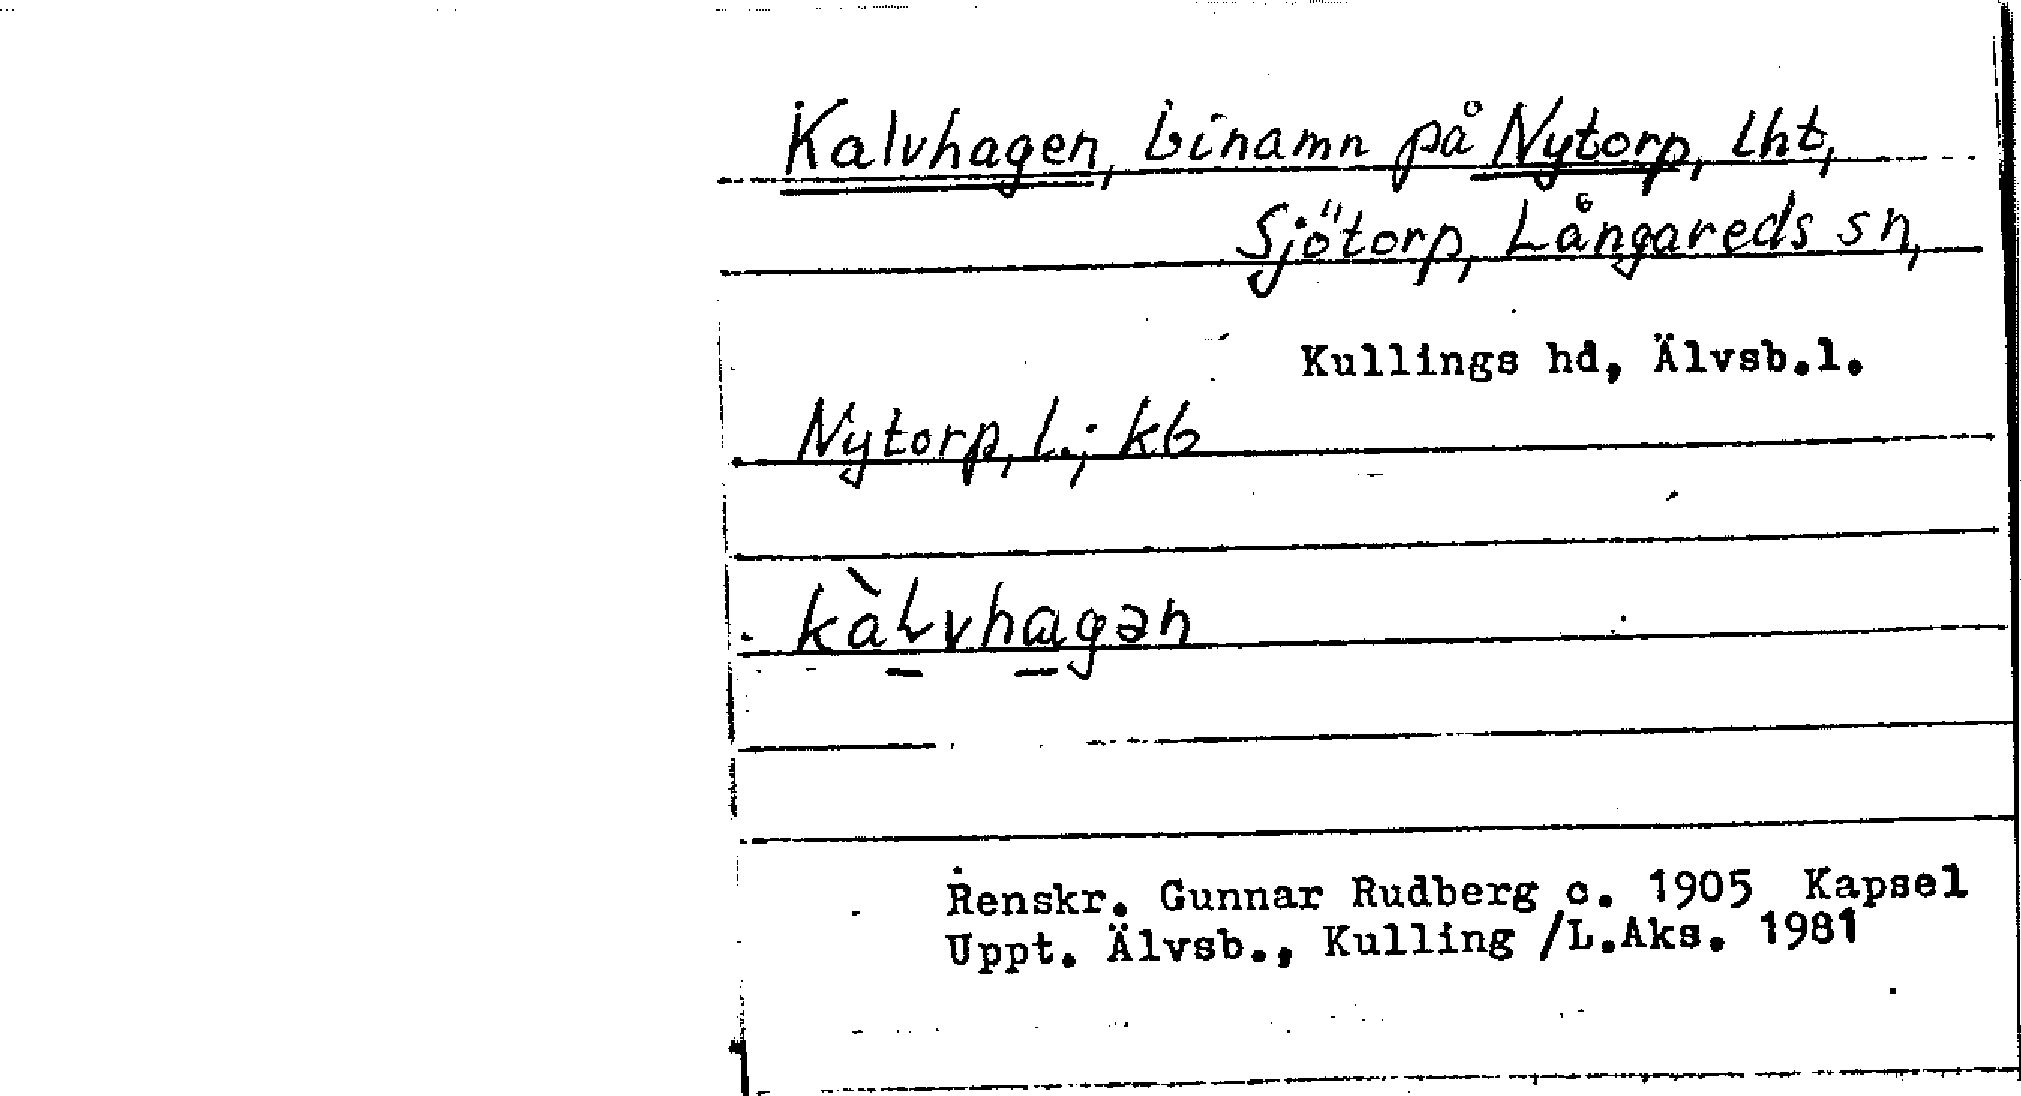 Kalvhagen, binamn på Nytorp, lht,
Sjötorp, Långareds sn,
Kullings hd, Älvsb.l.
Nytorp, l.; kb
kàLvhagən
Renskr. Gunnar Rudberg c. 1905 Kapsel
Uppt. Älvsb., Kulling /L.Aks. 1981